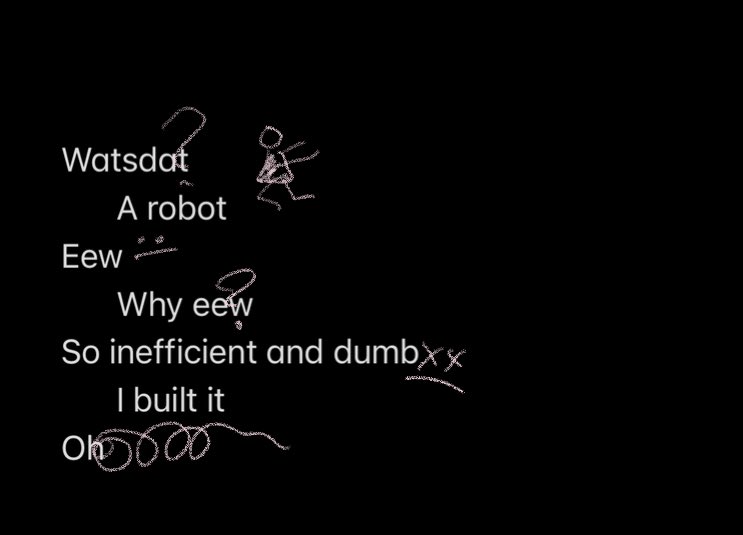 Watsdat?
A robot
Eew
Why eew?
So inefficient and dumb xx
I built it
Oh